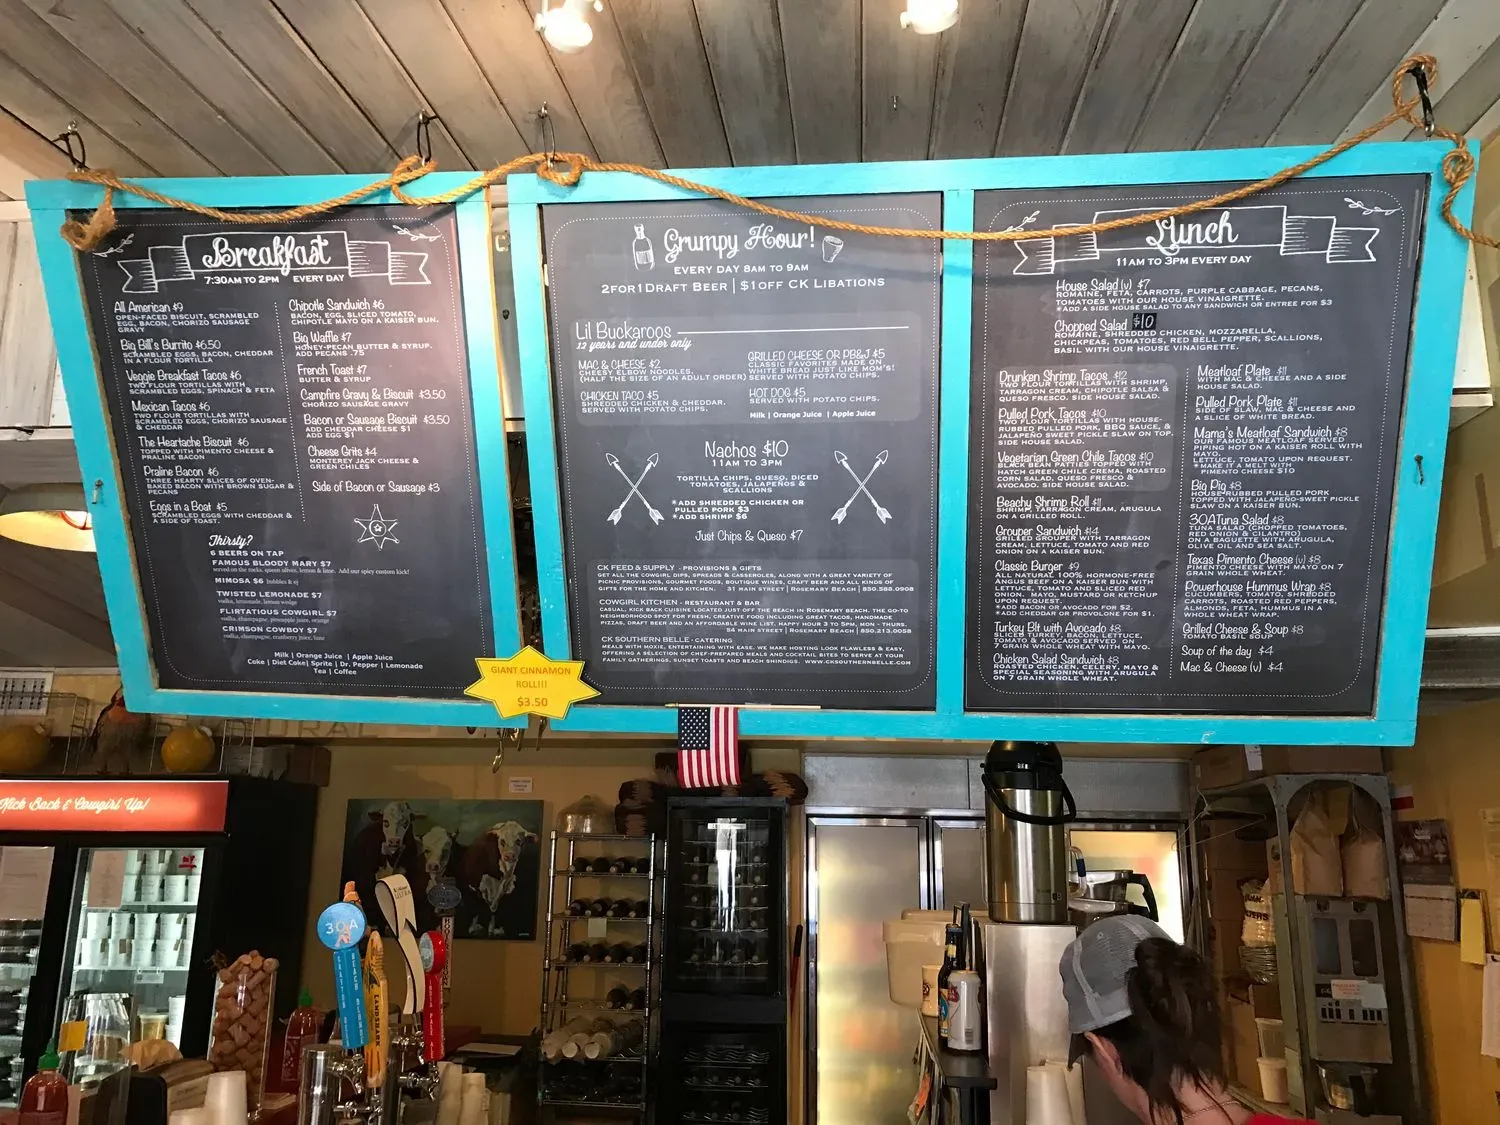 Breakfast
7:30AM TO 2PM EVERY DAY
All American $9
OPEN-FACED BISCUIT, SCRAMBLED
EGG, BACON, CHORIZO SAUSAGE
GRAVY
Big Bill's Burrito $6.50
SCRAMBLED EGGS, BACON, CHEDDAR
IN A FLOUR TORTILLA
Veggie Breakfast Tacos $6
TWO FLOUR TORTILLAS WITH
SCRAMBLED EGGS, SPINACH & FETA
Mexican Tacos $6
TWO FLOUR TORTILLAS WITH
SCRAMBLED EGGS, CHORIZO SAUSAGE
& CHEDDAR
The Heartache Biscuit $6
TOPPED WITH PIMENTO CHEESE &
PRALINE BACON
Praline Bacon $6
THREE HEARTY SLICES OF OVEN-
BAKED BACON WITH BROWN SUGAR &
PECANS
Eggs in a Boat $5
SCRAMBLED EGGS WITH CHEDDAR &
A SIDE OF TOAST.
Chipotle Sandwich $6
BACON, EGG, SLICED TOMATO,
CHIPOTLE MAYO ON A KAISER BUN.
Big Waffle $7
HONEY-PECAN BUTTER & SYRUP.
ADD PECANS .75
French Toast $7
BUTTER & SYRUP
Campfire Gravy & Biscuit $3.50
CHORIZO SAUSAGE GRAVY
Bacon or Sausage Biscuit $3.50
ADD CHEDDAR CHEESE $1
ADD EGG $1
Cheese Grits $4
MONTEREY JACK CHEESE &
GREEN CHILES
Side of Bacon or Sausage $3
Thirsty?
6 BEERS ON TAP
FAMOUS BLOODY MARY $7
served on the rocks, queen olives, lemon & lime. Add our spicy custom kick!
MIMOSA $6 bubbles & oj
TWISTED LEMONADE $7
vodka, lemonade, lemon wedge
FLIRTATIOUS COWGIRL $7
vodka, champagne, pineapple juice, orange
CRIMSON COWBOY $7
vodka, champagne, cranberry juice, lime
Milk | Orange Juice | Apple Juice
Coke | Diet Coke| Sprite | Dr. Pepper | Lemonade
Tea | Coffee
Grumpy Hour!
EVERY DAY 8AM TO 9AM
2FOR1 DRAFT BEER | $1OFF CK LIBATIONS
Lil Buckaroos
12 years and under only
MAC & CHEESE $2
CHEESY ELBOW NOODLES.
(HALF THE SIZE OF AN ADULT ORDER)
CHICKEN TACO $5
SHREDDED CHICKEN & CHEDDAR.
SERVED WITH POTATO CHIPS.
GRILLED CHEESE OR PB&J $5
CLASSIC FAVORITES MADE ON
WHITE BREAD JUST LIKE MOM'S!
SERVED WITH POTATO CHIPS.
HOT DOG $5
SERVED WITH POTATO CHIPS.
Milk | Orange Juice | Apple Juice
Nachos $10
11AM TO 3PM
TORTILLA CHIPS, QUESO, DICED
TOMATOES, JALAPEÑOS &
SCALLIONS
*ADD SHREDDED CHICKEN OR
PULLED PORK $3
*ADD SHRIMP $6
Just Chips & Queso $7
CK FEED & SUPPLY - PROVISIONS & GIFTS
GET ALL THE COWGIRL DIPS, SPREADS & CASSEROLES, ALONG WITH A GREAT VARIETY OF
PICNIC PROVISIONS, GOURMET FOODS, BOUTIQUE WINES, CRAFT BEER AND ALL KINDS OF
GIFTS FOR THE HOME AND KITCHEN. 31 MAIN STREET | ROSEMARY BEACH | 850.588.0908
COWGIRL KITCHEN - RESTAURANT & BAR
CASUAL, KICK BACK CUISINE LOCATED JUST OFF THE BEACH IN ROSEMARY BEACH. THE GO-TO
NEIGHBORHOOD SPOT FOR FRESH, CREATIVE FOOD INCLUDING GREAT TACOS, HANDMADE
PIZZAS, DRAFT BEER AND AN AFFORDABLE WINE LIST. HAPPY HOUR 3 TO 5PM, MON - THURS.
54 MAIN STREET | ROSEMARY BEACH | 850.213.0058
CK SOUTHERN BELLE - CATERING
MEALS WITH MOXIE, ENTERTAINING WITH EASE. WE MAKE HOSTING LOOK FLAWLESS & EASY,
OFFERING A SELECTION OF CHEF-PREPARED MEALS AND COCKTAIL BITES TO SERVE AT YOUR
FAMILY GATHERINGS, SUNSET TOASTS AND BEACH SHINDIGS. WWW.CKSOUTHERNBELLE.COM
Lunch
11AM TO 3PM EVERY DAY
House Salad (v) $7
ROMAINE, FETA, CARROTS, PURPLE CABBAGE, PECANS,
TOMATOES WITH OUR HOUSE VINAIGRETTE.
*ADD A SIDE HOUSE SALAD TO ANY SANDWICH OR ENTREE FOR $3
Chopped Salad $10
ROMAINE, SHREDDED CHICKEN, MOZZARELLA,
CHICKPEAS, TOMATOES, RED BELL PEPPER, SCALLIONS,
BASIL WITH OUR HOUSE VINAIGRETTE.
Drunken Shrimp Tacos $12
TWO FLOUR TORTILLAS WITH SHRIMP,
TARRAGON CREAM, CHIPOTLE SALSA &
QUESO FRESCO. SIDE HOUSE SALAD.
Pulled Pork Tacos $10
TWO FLOUR TORTILLAS WITH HOUSE-
RUBBED PULLED PORK, BBQ SAUCE, &
JALAPEÑO SWEET PICKLE SLAW ON TOP.
SIDE HOUSE SALAD.
Vegetarian Green Chile Tacos $10
BLACK BEAN PATTIES TOPPED WITH
HATCH GREEN CHILE CREMA, ROASTED
CORN SALAD, QUESO FRESCO &
AVOCADO. SIDE HOUSE SALAD.
Beachy Shrimp Roll $11
SHRIMP, TARRAGON CREAM, ARUGULA
ON A GRILLED ROLL.
Grouper Sandwich $14
GRILLED GROUPER WITH TARRAGON
CREAM, LETTUCE, TOMATO AND RED
ONION ON A KAISER BUN.
Classic Burger $9
ALL NATURAL 100% HORMONE-FREE
ANGUS BEEF ON A KAISER BUN WITH
LETTUCE, TOMATO AND SLICED RED
ONION. MAYO, MUSTARD OR KETCHUP
UPON REQUEST.
*ADD BACON OR AVOCADO FOR $2.
*ADD CHEDDAR OR PROVOLONE FOR $1.
Turkey Blt with Avocado $8
SLICED TURKEY, BACON, LETTUCE,
TOMATO & AVOCADO SERVED ON
7 GRAIN WHOLE WHEAT WITH MAYO.
Chicken Salad Sandwich $8
ROASTED CHICKEN, CELERY, MAYO &
SPECIAL SEASONING WITH ARUGULA
ON 7 GRAIN WHOLE WHEAT.
Meatloaf Plate $11
WITH MAC & CHEESE AND A SIDE
HOUSE SALAD.
Pulled Pork Plate $11
SIDE OF SLAW, MAC & CHEESE AND
A SLICE OF WHITE BREAD.
Mama's Meatloaf Sandwich $8
OUR FAMOUS MEATLOAF SERVED
PIPING HOT ON A KAISER ROLL WITH
MAYO.
LETTUCE, TOMATO UPON REQUEST.
*MAKE IT A MELT WITH
PIMENTO CHEESE $10
Big Pig $8
HOUSE-RUBBED PULLED PORK
TOPPED WITH JALAPEÑO-SWEET PICKLE
SLAW ON A KAISER BUN.
30A Tuna Salad $8
TUNA SALAD (CHOPPED TOMATOES,
RED ONION & CILANTRO)
ON A BAGUETTE WITH ARUGULA,
OLIVE OIL AND SEA SALT.
Texas Pimento Cheese (v) $8
PIMENTO CHEESE WITH MAYO ON 7
GRAIN WHOLE WHEAT.
Powerhouse Hummus Wrap $8
CUCUMBERS, TOMATO, SHREDDED
CARROTS, ROASTED RED PEPPERS,
ALMONDS, FETA, HUMMUS IN A
WHOLE WHEAT WRAP.
Grilled Cheese & Soup $8
TOMATO BASIL SOUP
Soup of the day $4
Mac & Cheese (v) $4
GIANT CINNAMON
ROLL!!!
$3.50
Kick Back & Cowgirl Up!
30A
GRAYTON BEACH BLONDE
LANDSHARK
INDIA PALE
ULTRA